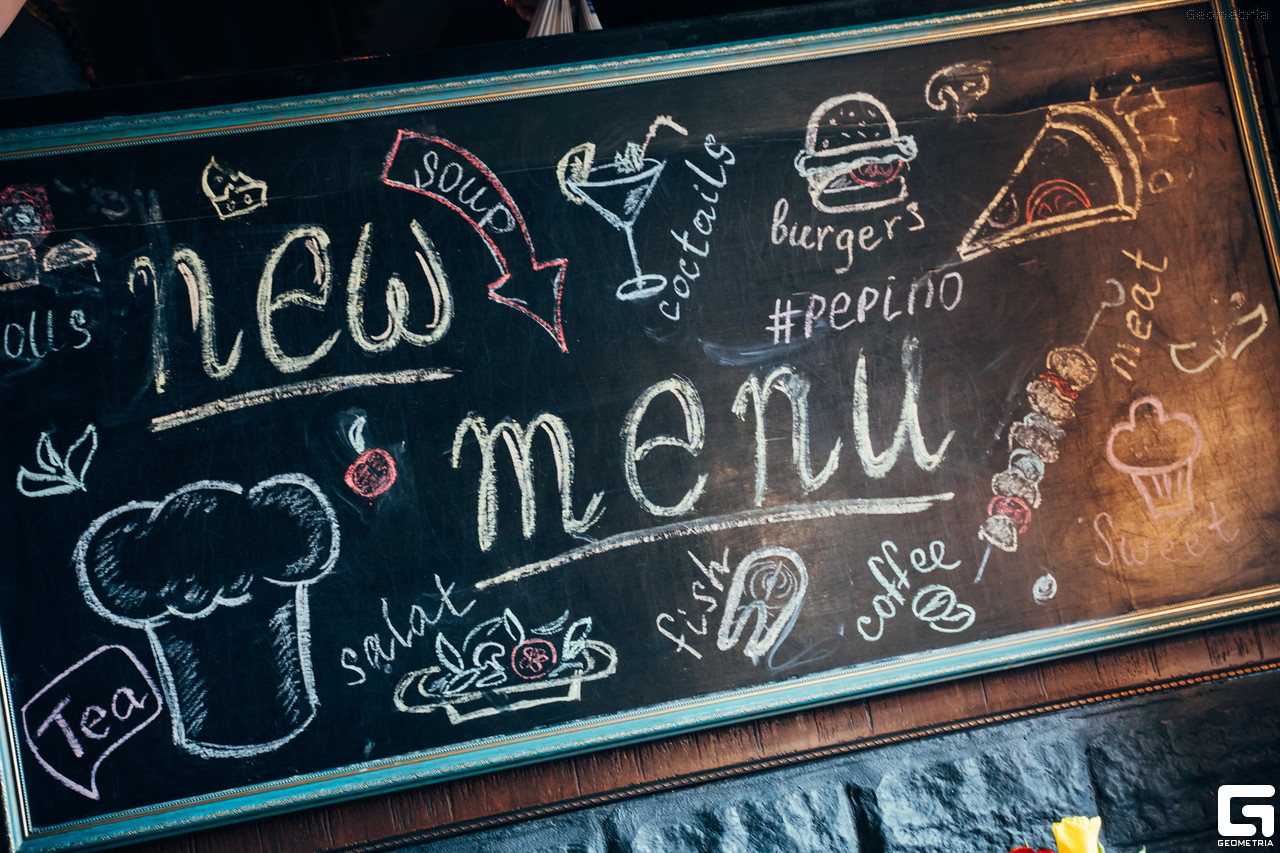 Geometria
SOUP
coctails
burgers
new
#PEPINO
meat
olls
menu
Sweet
salat
fish
coffee
Tea
GEOMETRIA